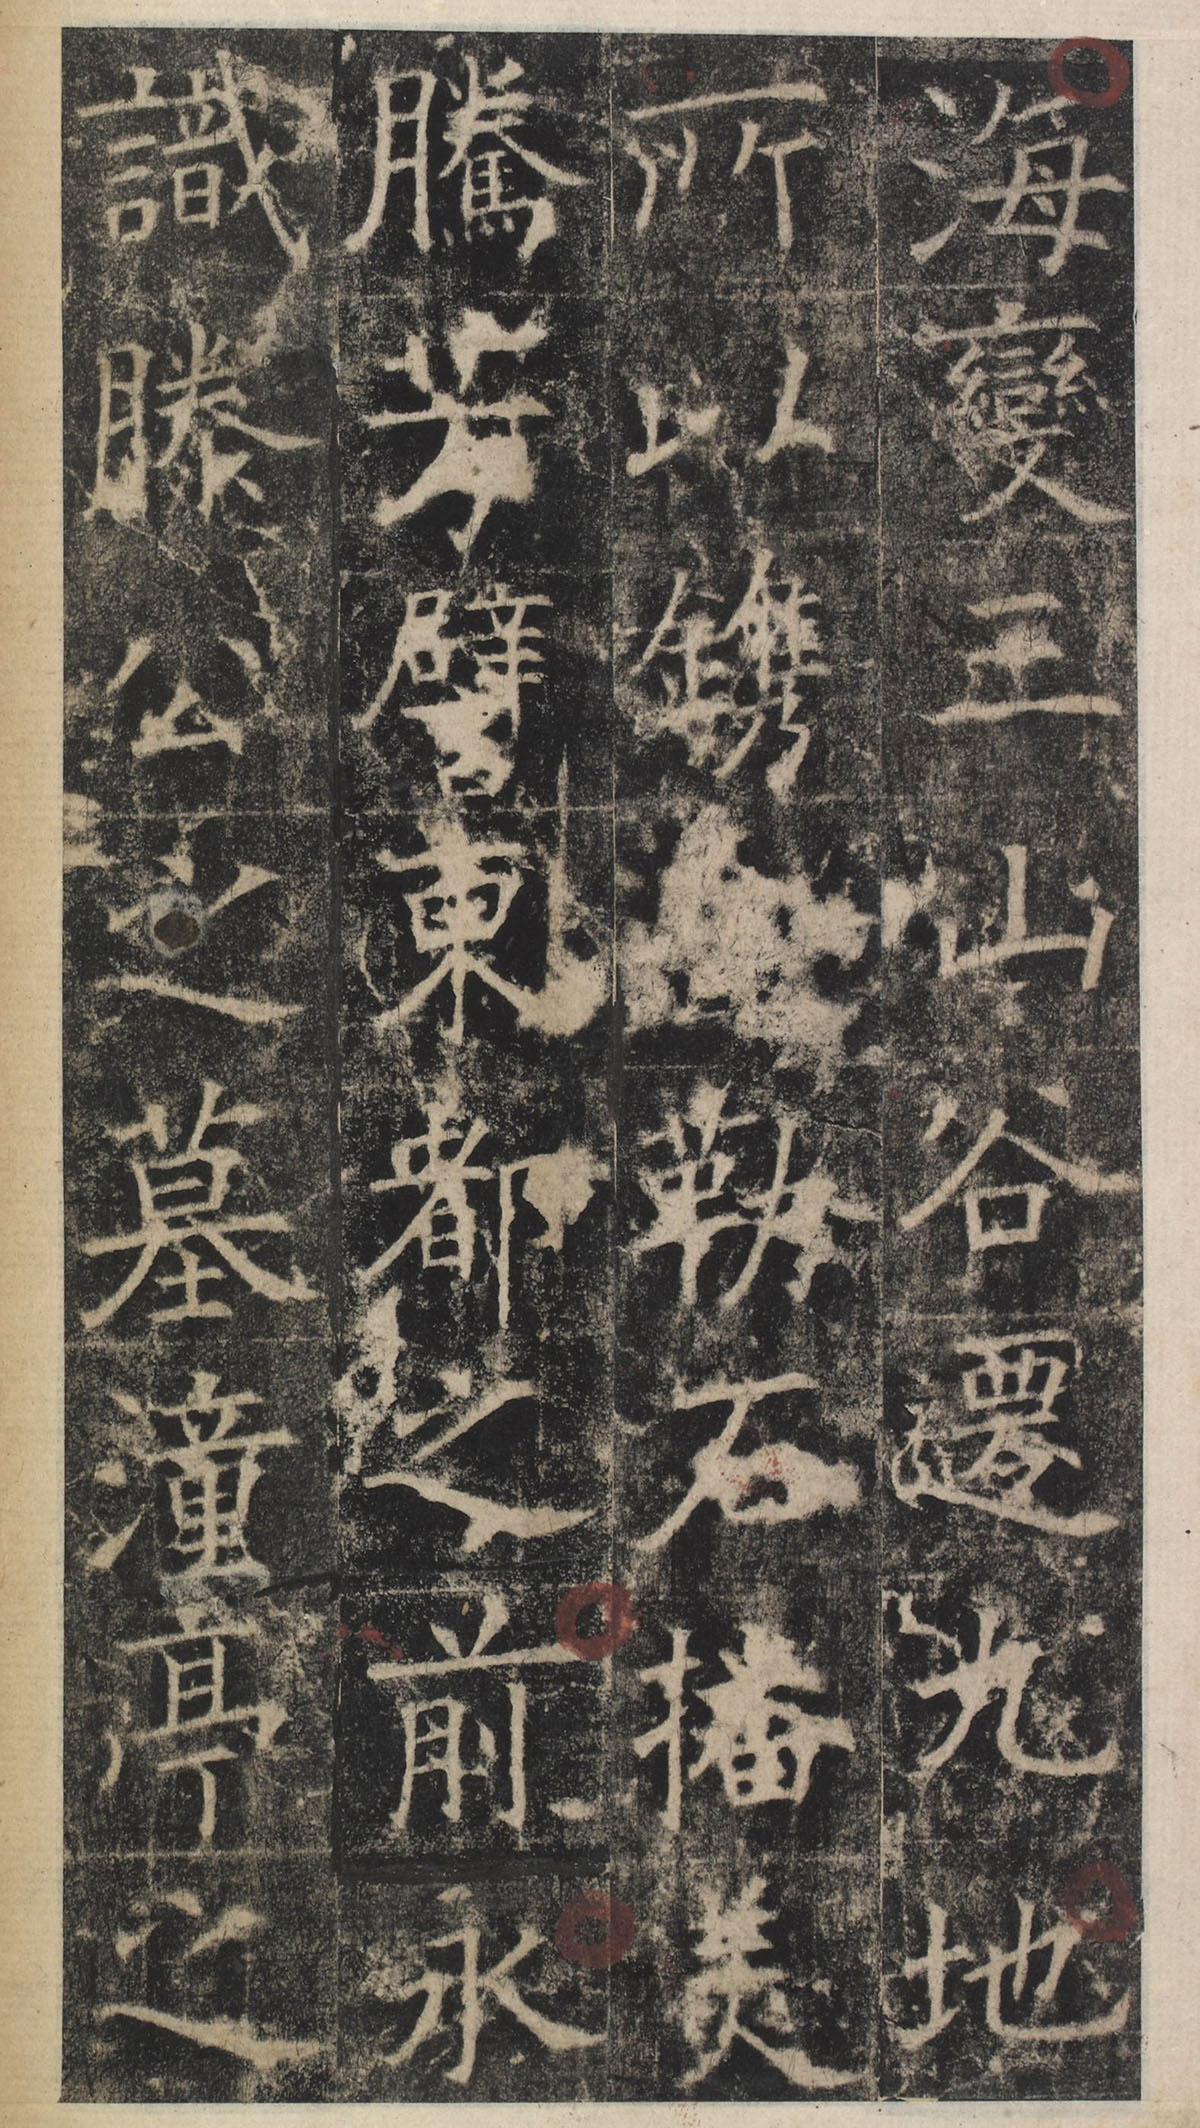 海變三山谷遷九地
所以鐫勒石播美
騰芳譬東都之前永
識滕公之墓潼亭之